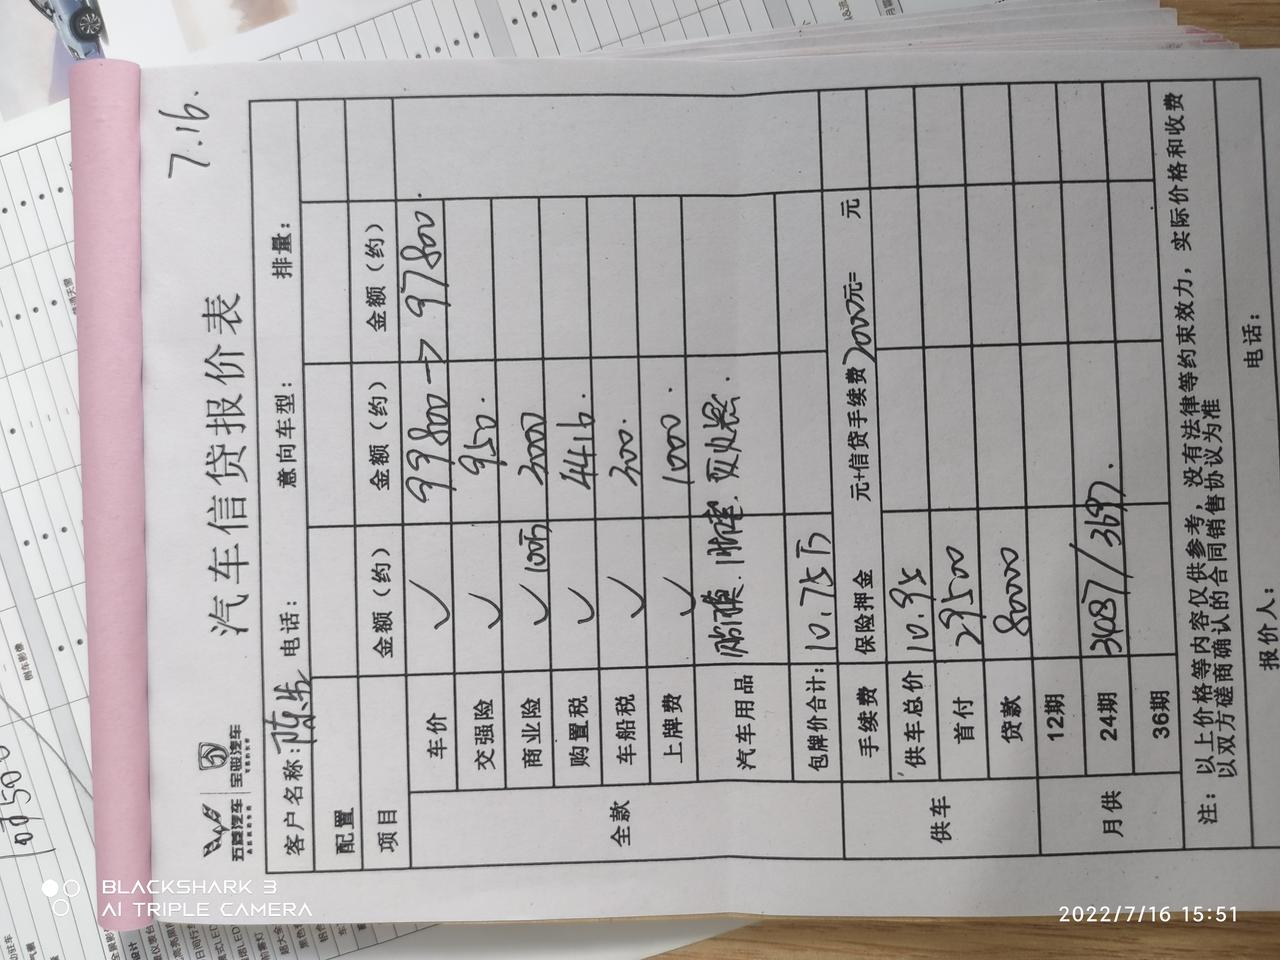 7.16.
五菱汽车 宝骏汽车
汽车信贷报价表
客户名称: 陈先生 电话: 意向车型: 排量:
配置
项目 金额(约) 金额(约) 金额(约)
全款
车价 ✓ 99800 → 97800.
交强险 ✓ 950.
商业险 ✓ 100万 3000
购置税 ✓ 4416.
车船税 ✓ 300.
上牌费 ✓ 1000.
汽车用品 贴膜. 脚垫.
包牌价合计: 10.75万
供车
手续费 保险押金 元+信贷手续费2000元= 元
供车总价 10.95
首付 29500
贷款 80000
月供
12期
24期 3487/3697.
36期
注: 以上价格等内容仅供参考, 没有法律等约束效力, 实际价格和收费
以双方磋商确认的合同销售协议为准
报价人: 电话:
BLACKSHARK 3
AI TRIPLE CAMERA
2022/7/16 15:51